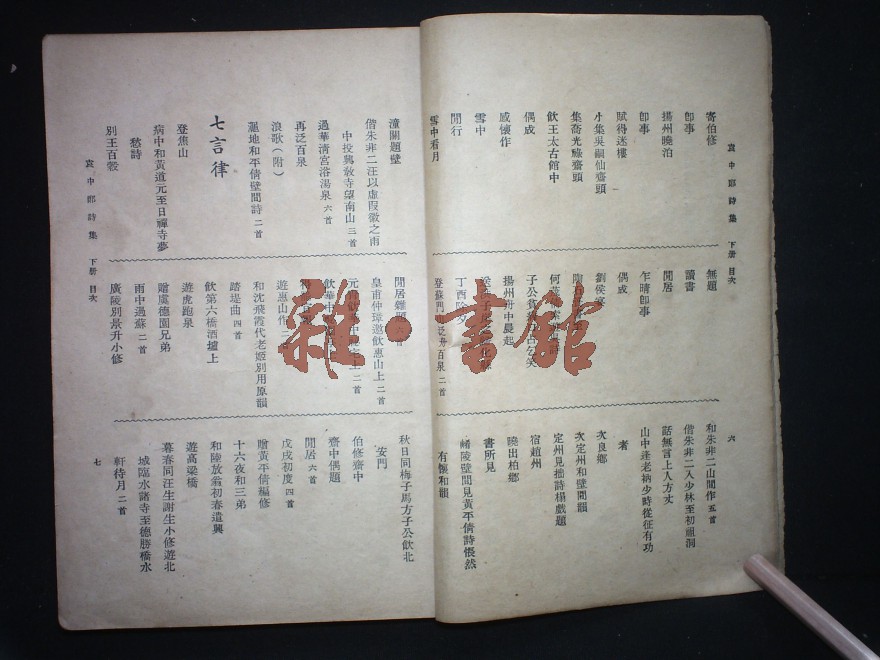 袁中郎詩集 下册 目次
寄伯修
卽事
揚州曉泊
卽事
賦得迷樓
小集吳嗣仙齋頭
集喬光祿齋頭
飲王太古館中
偶成
感懷作
雪中
閒行
雪中看月
無題
讀書
閒居
乍晴卽事
偶成
劉侯宴
揚州舟中晨起
丁酉除夕
登蘇門山泛舟百泉 二首
六
和朱非二山間作 五首
偕朱非二入少林至初祖洞
話無言上人方丈
山中逢老衲少時從征有功
者
次良鄉
次定州和壁間韻
定州見拙詩揭戲題
宿趙州
曉出柏鄉
書所見
崤陵壁間見黃平倩詩悵然
有懷和韻
潼關題壁
偕朱非二汪以虛段徽之雨
中投興敎寺望南山 三首
過華清宮浴湯泉 六首
再泛百泉
浪歌（附）
灞地和平倩壁間詩 二首
七言律
登焦山
病中和黃道元至日禪寺夢
愁詩
別王百穀
袁中郎詩集 下册 目次
閒居雜題 六首
皇甫仲璋邀飲惠山上 二首
遊惠山作 二首
和沈飛霞代老姬別用原韻
踏堤曲 四首
飲第六橋酒壚上
遊虎跑泉
贈虞德園兄弟
雨中過蘇 二首
廣陵別景升小修
秋日同梅子馬方子公飲北
安門
伯修齋中
齋中偶題
閒居 六首
戊戌初度 四首
贈黃平倩編修
十六夜和三弟
和陸放翁初春遣興
遊高梁橋
暮春同汪生謝生小修遊北
城臨水諸寺至德勝橋水
軒待月 二首
七
雜·書館